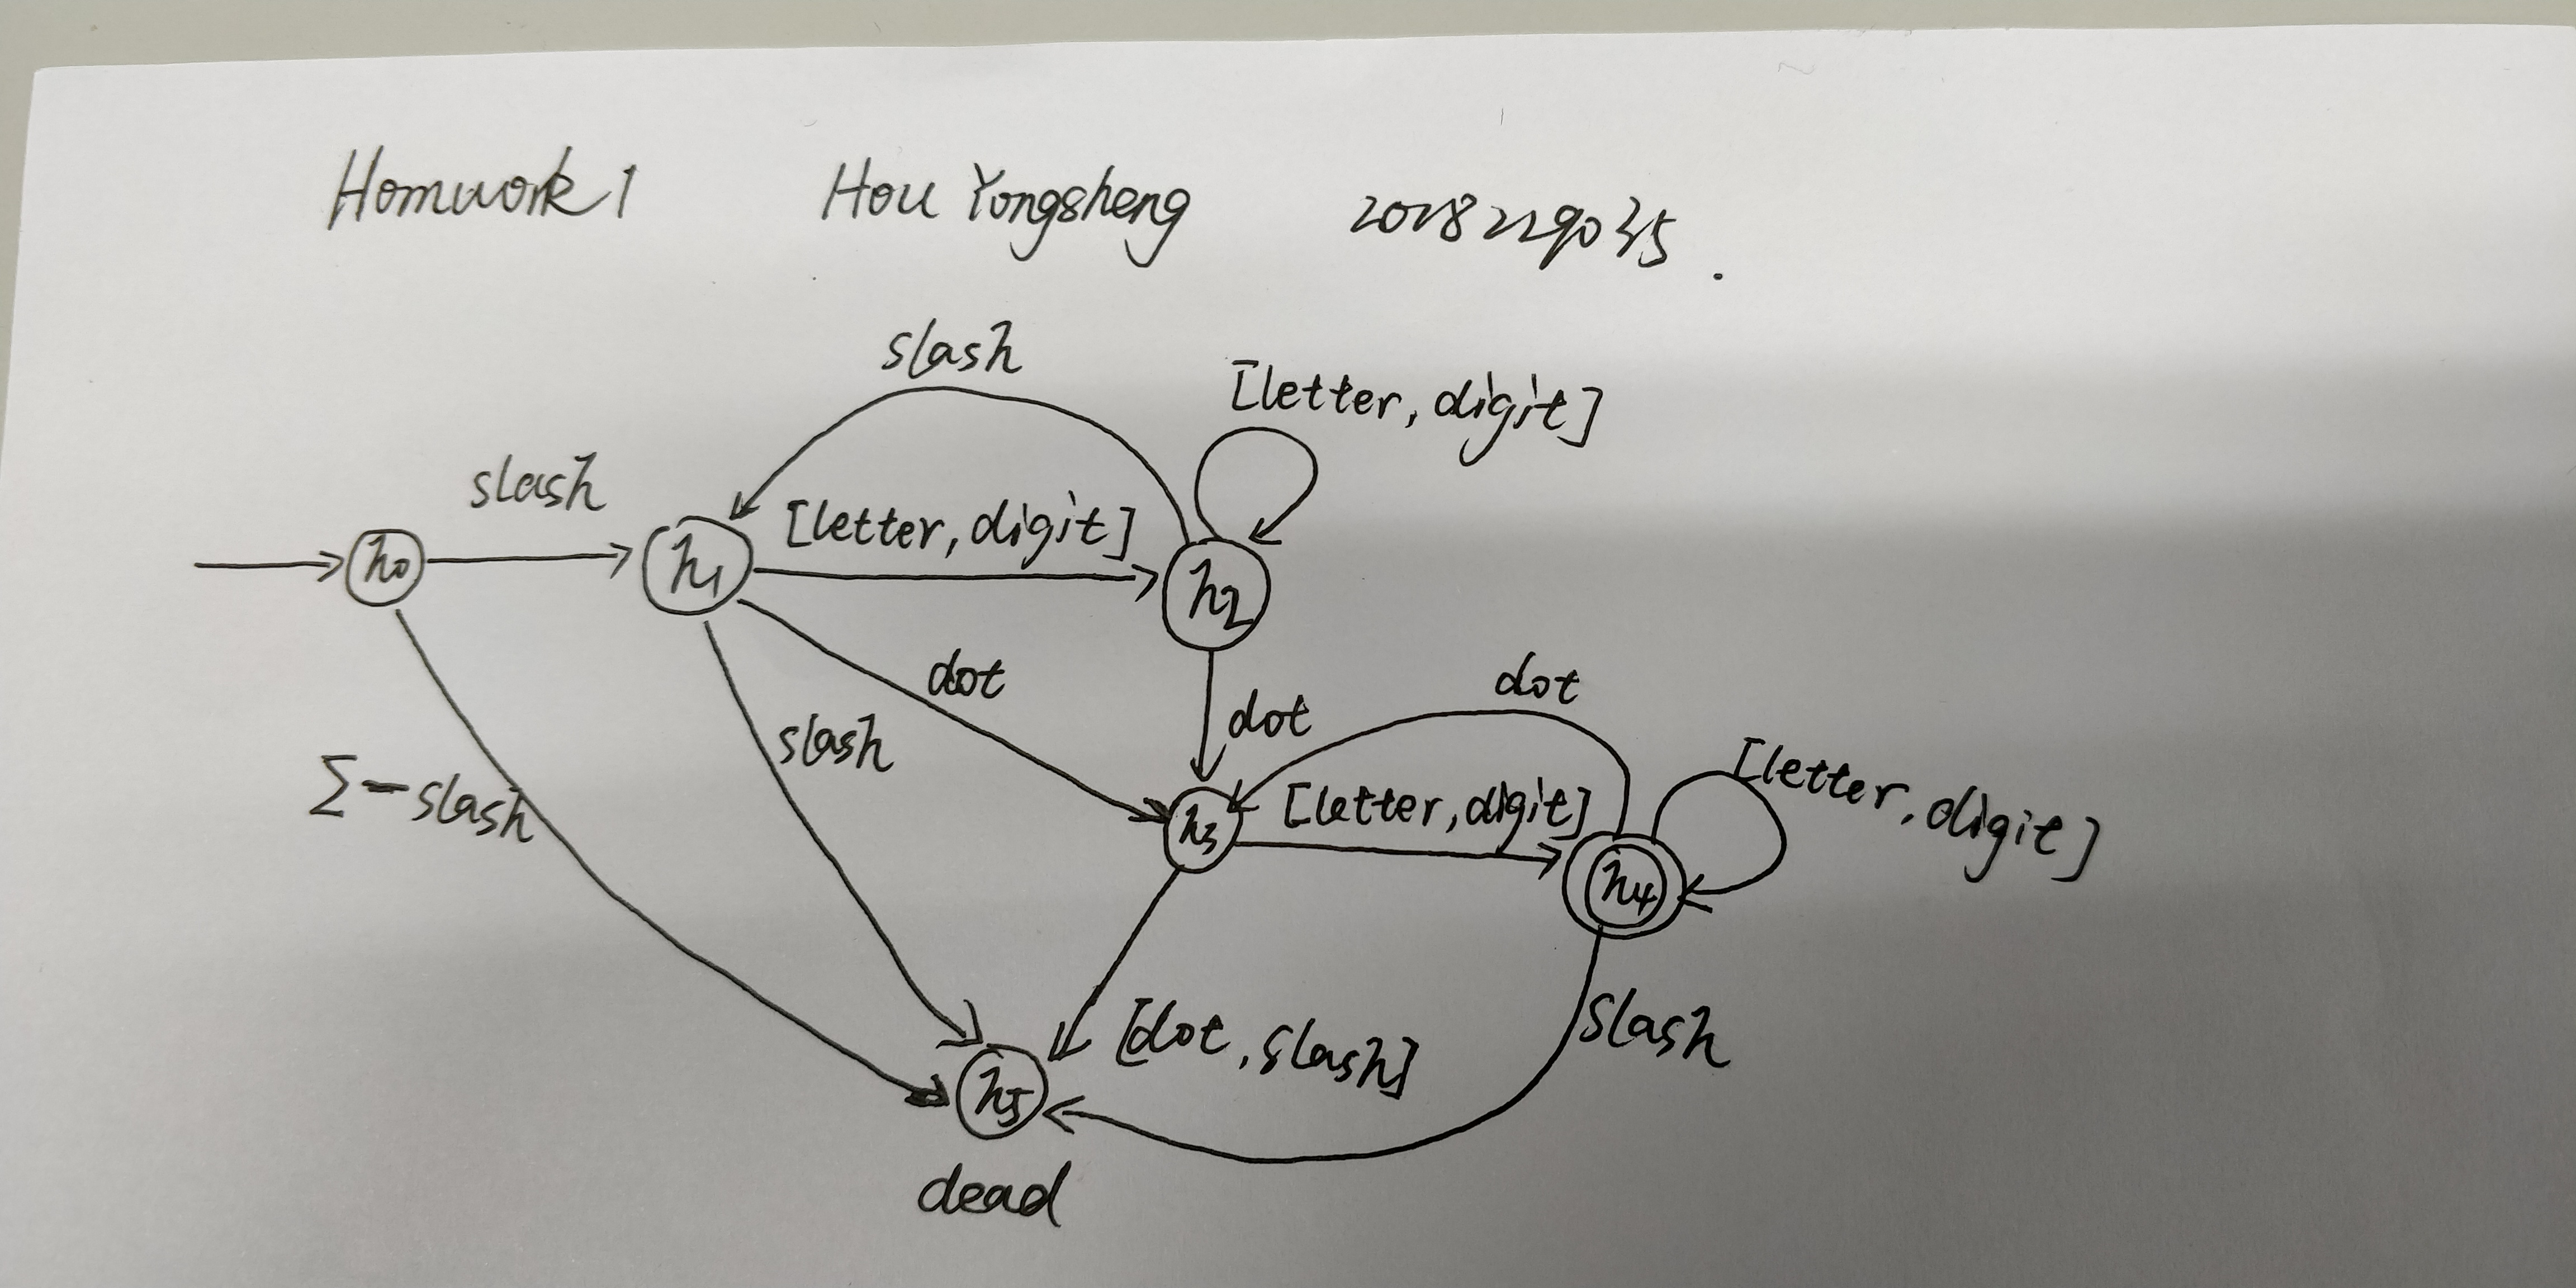 Homwork 1 Hou Yongsheng 2018229035.
slash
[letter, digit]
slash
[letter, digit]
h0 h1 h2
dot
dot
dot
slash
[letter, digit]
[letter, digit]
Σ-slash
h3
h4
[dot, slash]
slash
h5
dead